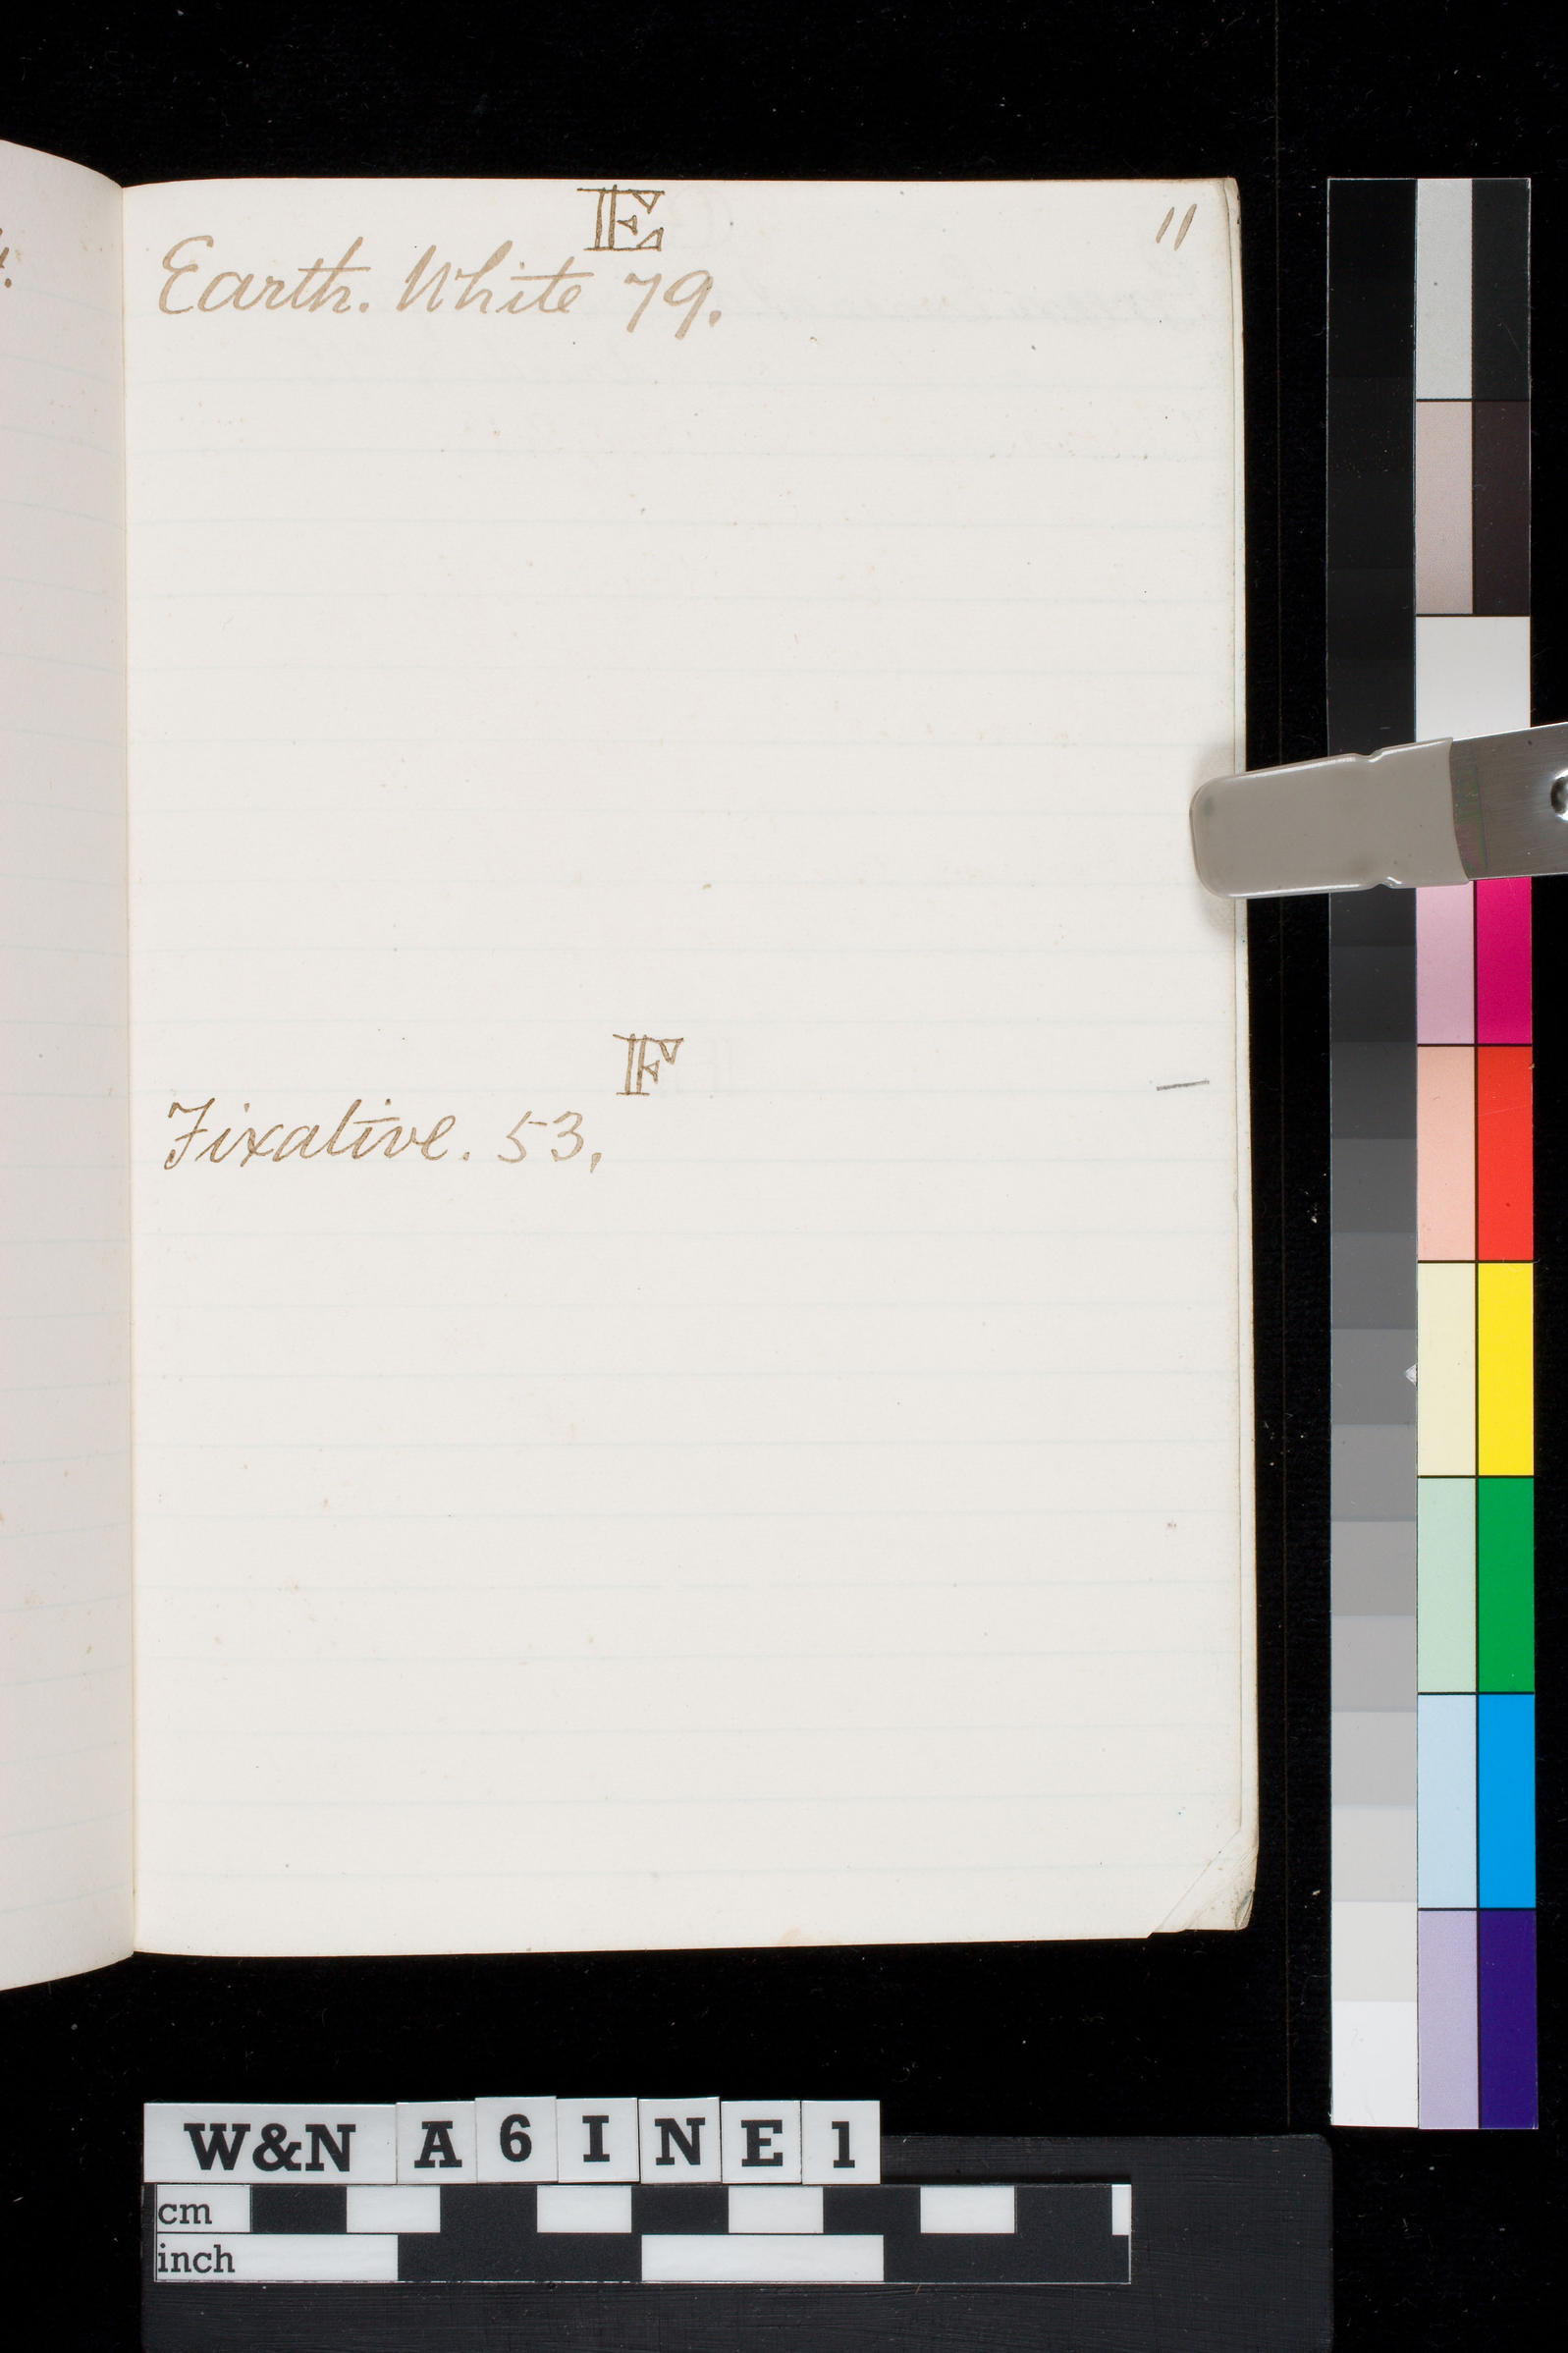 E
11
Earth. White 79.
F
Fixative. 53.
W&N A 6 I N E 1
cm
inch